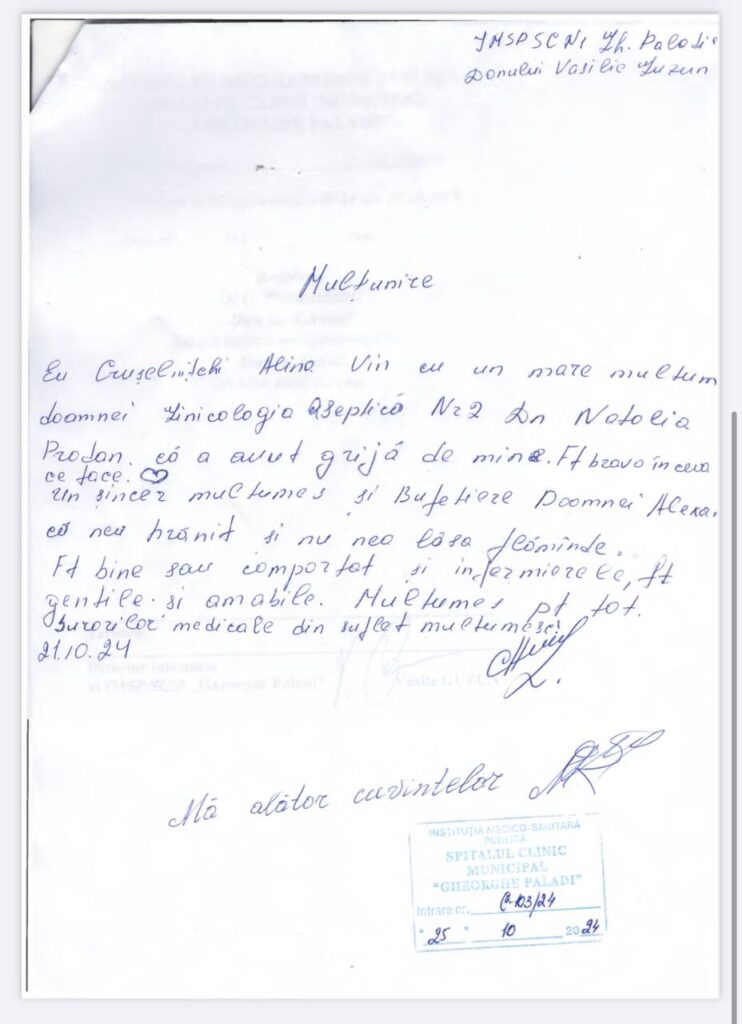 IMSPSCNI Gh. Palodie
Domului Vasilie Guzun
Multumire
Eu Crușelnițchi Alina Vin cu un mare multum
doamnei Ginicologia aseptică Nr2 Dn Natolia
Prodan. că a avut grijă de mine. Ft bravo în ceea
ce face.
un sincer multumes și Bufetiere Doomnei Alexa.
că neu hrănit si nu nea lăsa flămînde.
Ft bine sau comportat și infermierele, ft
gentile si amabile. Multumes pt tot.
Surorilor medicale din suflet multumesc!
21.10.24
Mă alător cuvintelor
INSTITUȚIA MEDICO-SANITARĂ
PUBLICĂ
SPITALUL CLINIC
MUNICIPAL
"GHEORGHE PALADI"
Intrare nr. C-103/24
"25" 10 2024